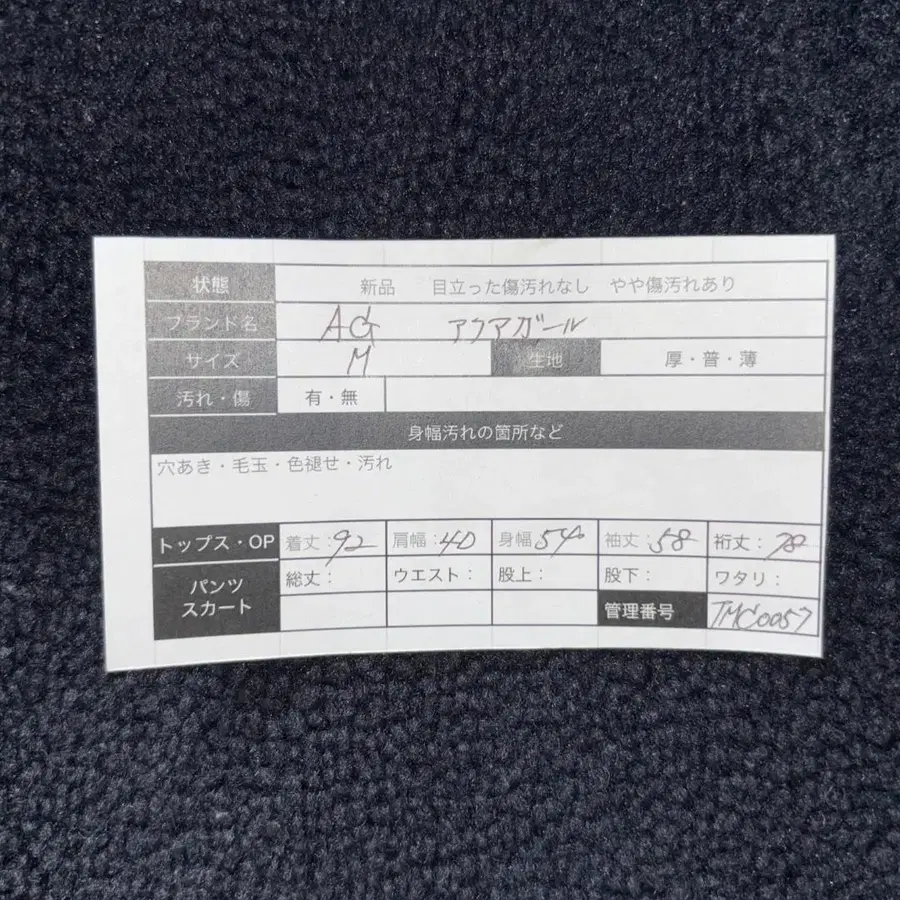 状態 新品 目立った傷汚れなし やや傷汚れあり
ブランド名 AG アクアガール
サイズ M 生地 厚・普・薄
汚れ・傷 有・無
身幅汚れの箇所など
穴あき・毛玉・色褪せ・汚れ
トップス・OP 着丈：92 肩幅：40 身幅：54 袖丈：58 裄丈：78
パンツ スカート 総丈： ウエスト： 股上： 股下： ワタリ：
管理番号 TMC0057